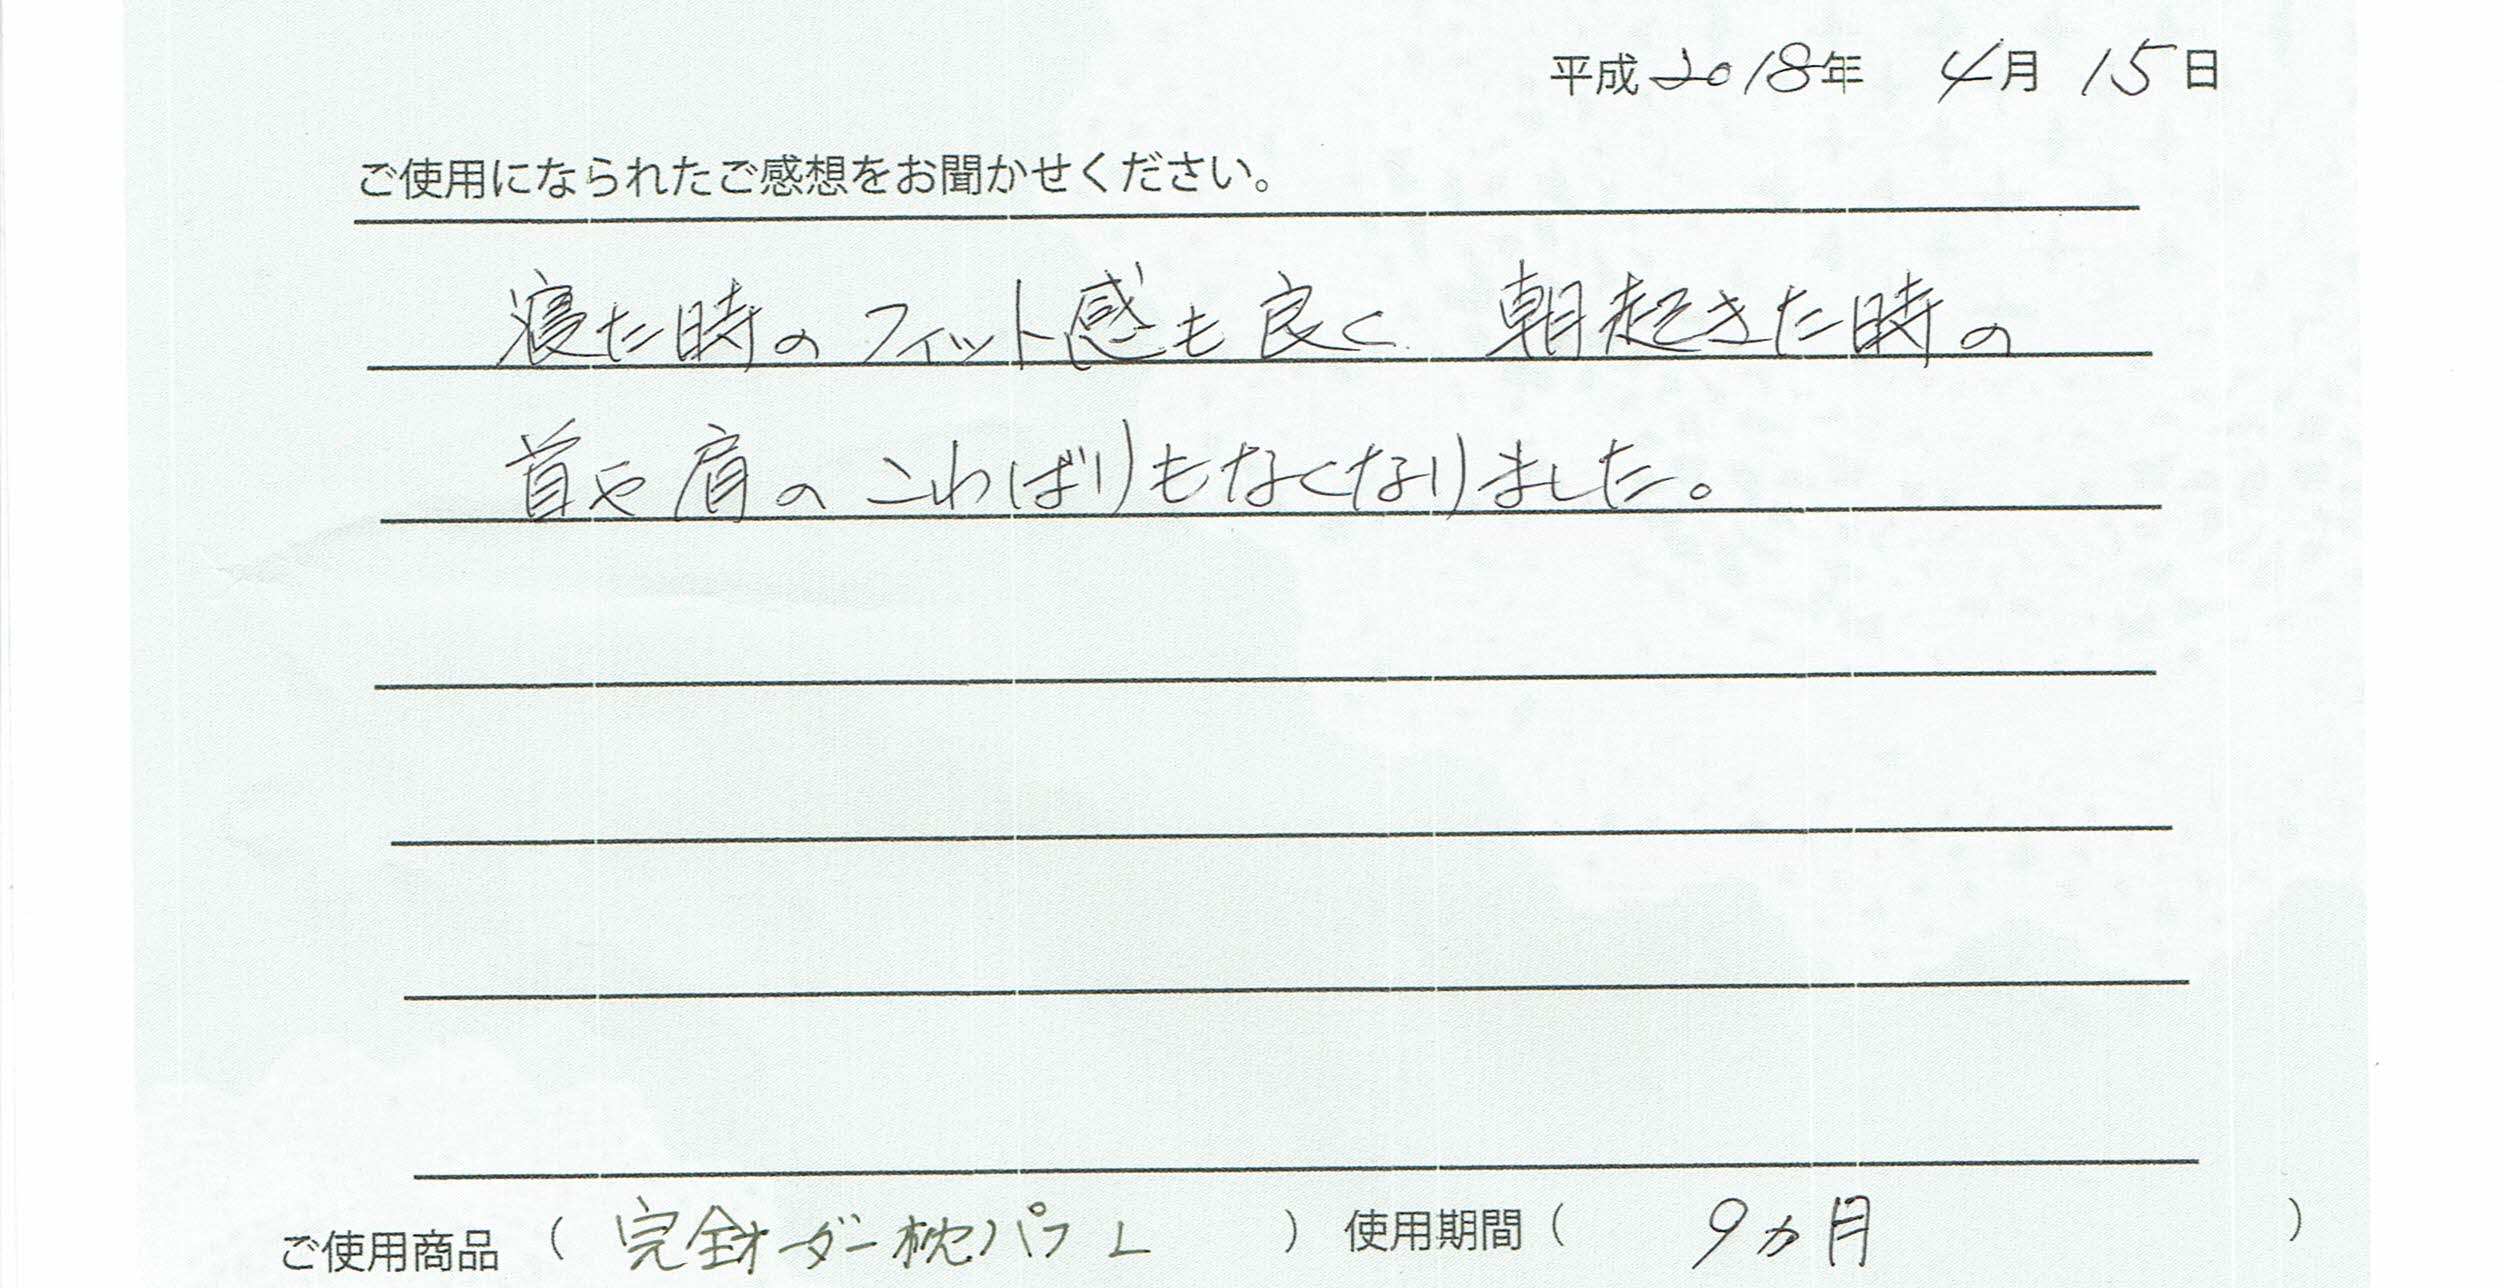 平成2018年 4月 15日
ご使用になられたご感想をお聞かせください。
寝た時のフィット感も良く 朝起きた時の
首や肩のこわばりもなくなりました。
ご使用商品 ( 完全オーダー枕パフ L ) 使用期間 ( 9カ月 )